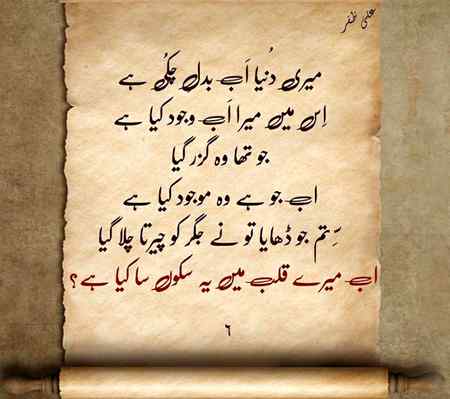 علی ظفر
میری دُنیا اَب بدل چُکی ہے
اِس میں میرا اَب وجود کیا ہے
جو تھا وہ گزر گیا
اب جو ہے وہ موجود کیا ہے
سِتم جو ڈھایا تو نے جگر کو چیرتا چلا گیا
اب میرے قلب میں یہ سکوں سا کیا ہے؟
٦